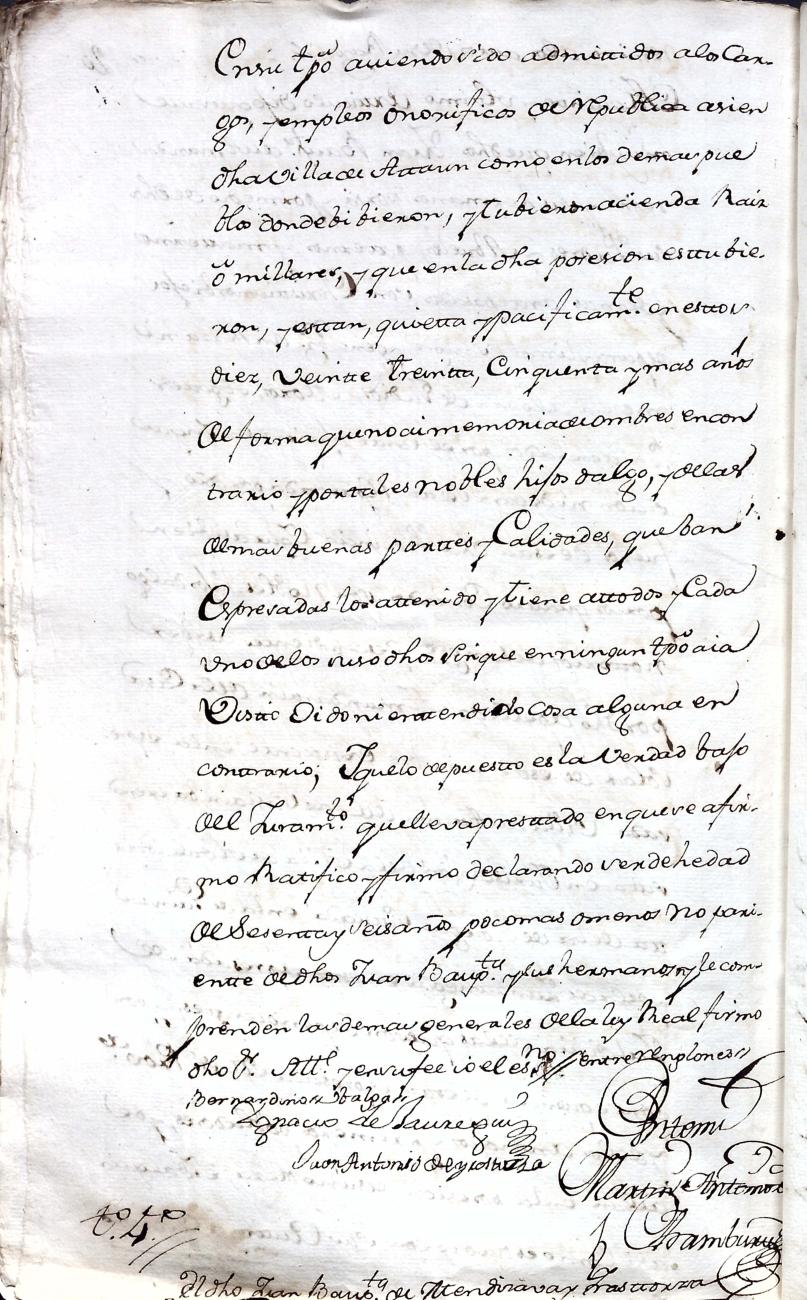 En su tpõ auiendo sido admittidos a los Car-
gos, y empleos onorificos de rrepublica asi en
dha villa de Attaun como en los demas pue
blos donde bibieron, y tubieron acienda Raiz
o millares, y que en la dha posesion esttubie-
ron, y esttan, quietta y pacificamte. en esttos
diez, Veintte treintta, Cinquenta y mas años
de forma que no ai memoria de ombres en con
trario y por tales nobles hijos dalgo, y de las
demas buenas parttes y Calidades, que ban
Espresadas los a ttenido y tiene a ttodos y Cada
vno de los suso dhos sin que en ningun tpõ aia
Visto Oido ni enttendido cosa alguna en
conttrario; Y que lo depuestto es la Verdad bajo
del Juramto. que lleva presttado en que se afir-
mo Ratifico y firmo declarando ser de hedad
de Sesenta y seis años poco mas o menos no pari-
entte de dhos Juan Bauptta. y sus hermanos y le com-
prenden las demas generales de la ley Real firmo
dho Sr. Alle. y en su fee io el essno // entre rrenglones //
Bernardino
Ygnacio de Jauregui
Juan Antonio de
Antemi
Martin Antonio de
Aramburu
to. 4o. //
El dho Juan Bauptta. de Mendizaval y